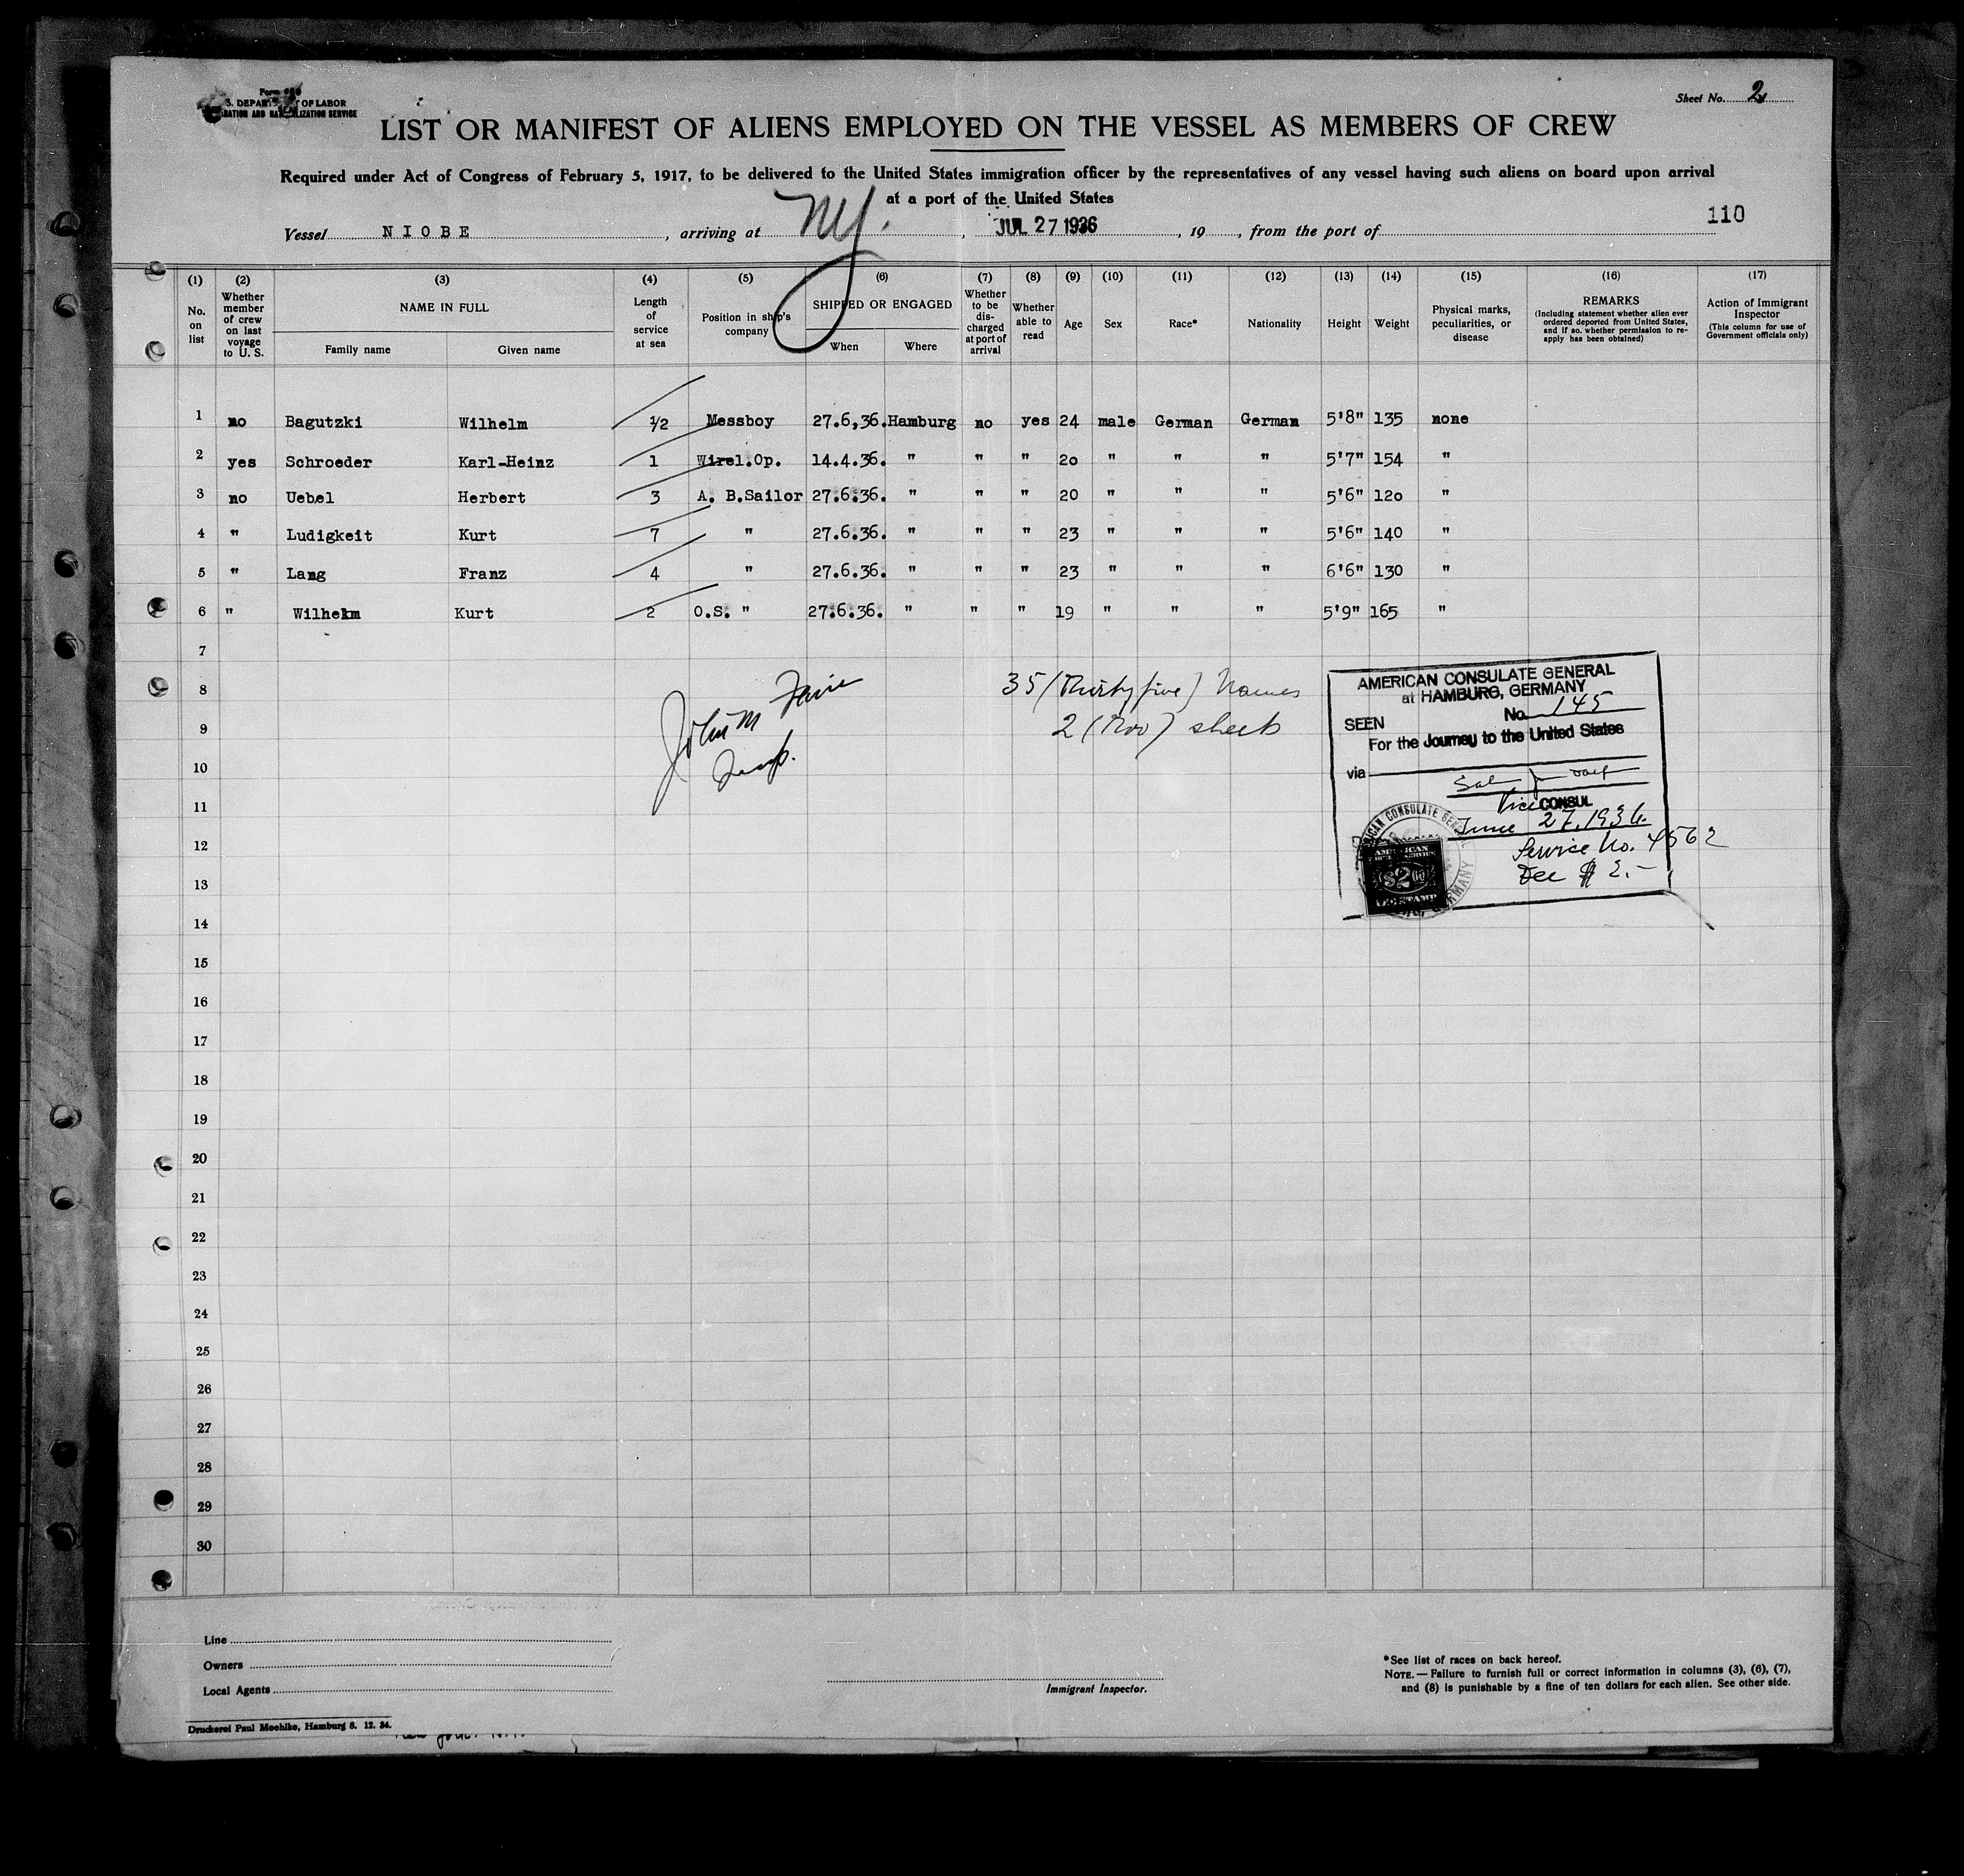 Sheet No. 2
S. DEPARTMENT OF LABOR
LIST OR MANIFEST OF ALIENS EMPLOYED ON THE VESSEL AS MEMBERS OF CREW
Required under Act of Congress of February 5, 1917, to be delivered to the United States immigration officer by the representatives of any vessel having such aliens on board upon arrival
at a port of the United States
110
Vessel NIOBE, arriving at NY., JUL 27 1936, 19, from the port of
(1) (2) (3) (4) (5) (6) (7) (8) (9) (10) (11) (12) (13) (14) (15) (16) (17)
No. on list
Whether member of crew on last voyage to U. S.
NAME IN FULL
Family name Given name
Length of service at sea
Position in ship's company
SHIPPED OR ENGAGED
When Where
Whether to be dis-charged at port of arrival
Whether able to read
Age
Sex
Race*
Nationality
Height
Weight
Physical marks, peculiarities, or disease
REMARKS
(Including statement whether alien ever ordered deported from United States, and if so, whether permission to re-apply has been obtained)
Action of Immigrant Inspector
(This column for use of Government officials only)
1 no Bagutzki Wilhelm 1/2 Messboy 27.6,36. Hamburg no yes 24 male German German 5'8" 135 none
2 yes Schroeder Karl-Heinz 1 Wirel.Op. 14.4.36. " " " 2o " " " 5'7" 154 "
3 no Uebel Herbert 3 A. B.Sailor 27.6.36. " " " 20 " " " 5'6" 12o "
4 " Ludigkeit Kurt 7 " 27.6.36. " " " 23 " " " 5'6" 140 "
5 " Lang Franz 4 " 27.6.36. " " " 23 " " " 6'6" 130 "
6 " Wilhelm Kurt 2 O.S. " 27.6.36. " " " 19 " " " 5'9" 165 "
7
8
9
10
11
12
13
14
15
16
17
18
19
20
21
22
23
24
25
26
27
28
29
30
John M
Insp.
35 (Thirty five) Names
2 (Two) sheets
AMERICAN CONSULATE GENERAL
at HAMBURG, GERMANY
SEEN No. 145
For the Journey to the United States
via
Vice CONSUL
June 27, 1936.
Service No. 4562
Fee $ 2.-
Line
Owners
Local Agents
Immigrant Inspector.
*See list of races on back hereof.
NOTE.—Failure to furnish full or correct information in columns (3), (6), (7),
and (8) is punishable by a fine of ten dollars for each alien. See other side.
Druckerei Paul Moehlke, Hamburg 8. 12. 34.